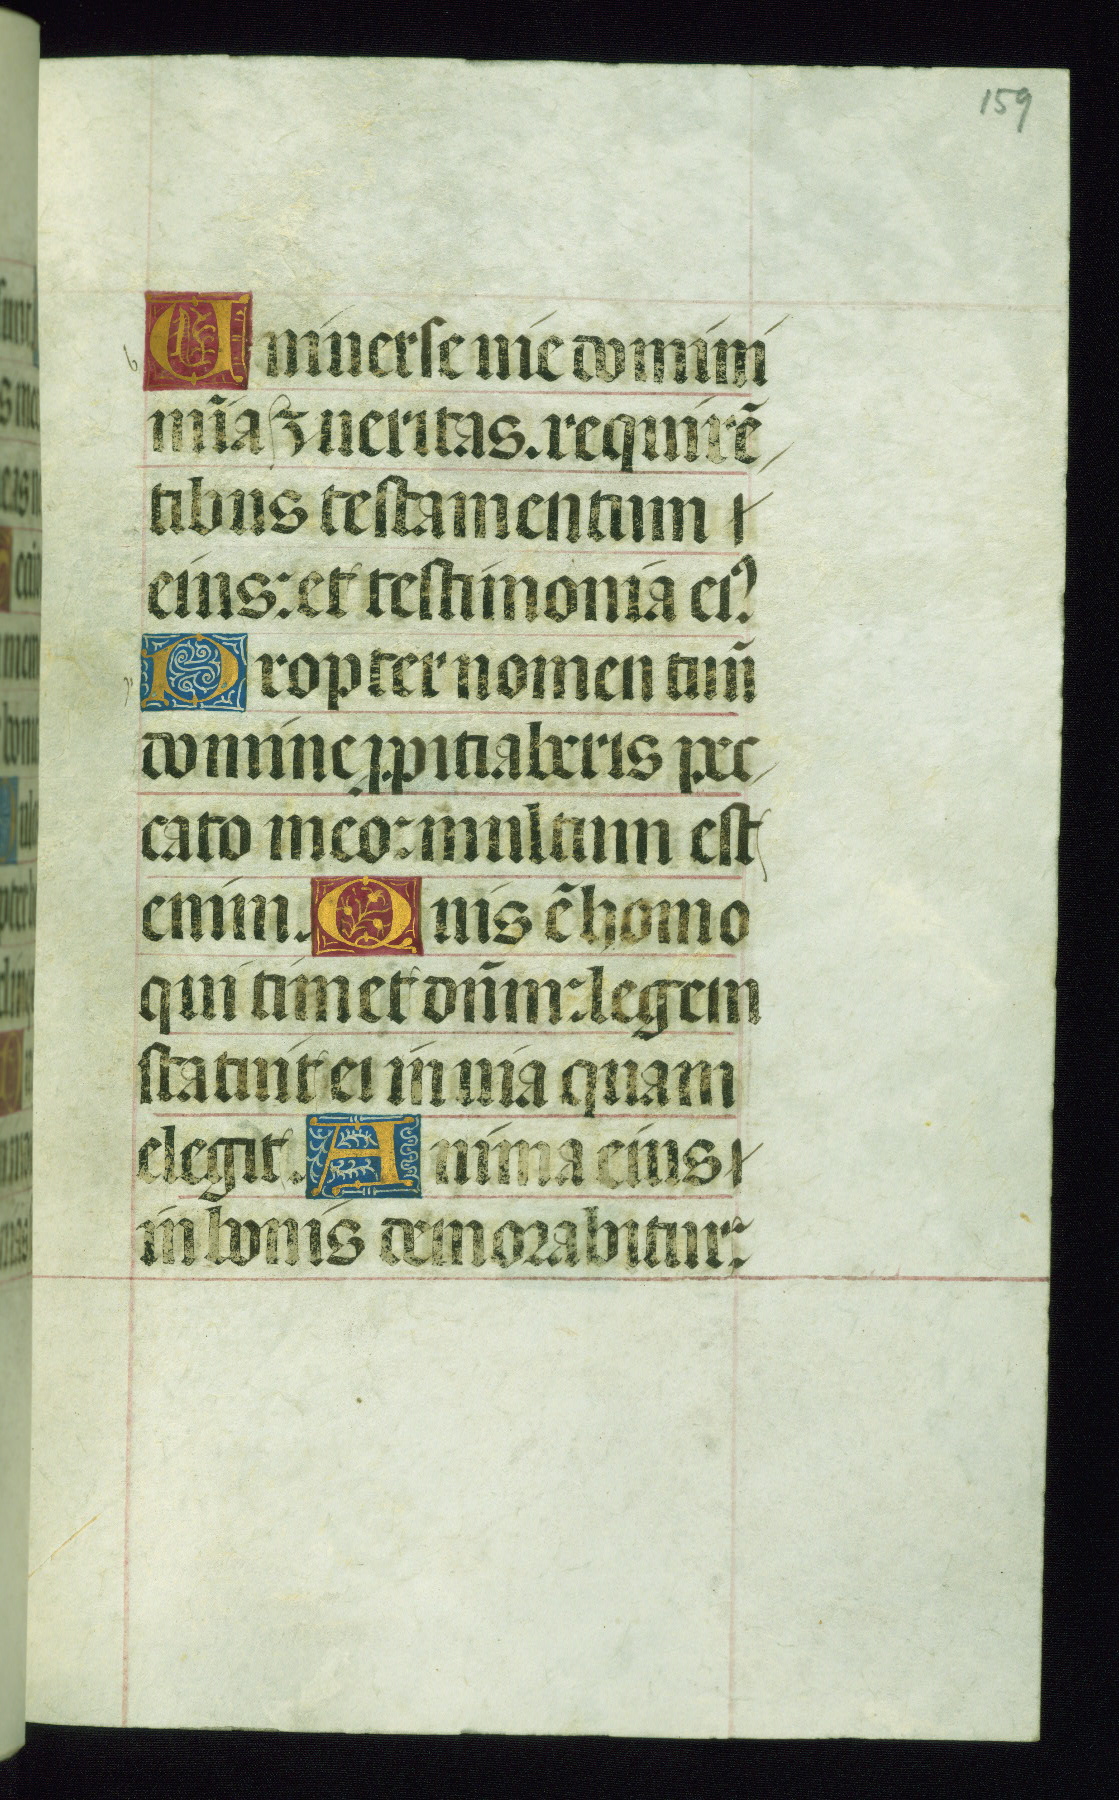 159
Uniuerse uie domini
mīa ⁊ ueritas. requirē
tibus testamentum
eius: et testimonia ei᾿
Propter nomen tuū
domine ꝓpitiaberis pec
cato meo: multum est
enim. Quis ē homo
qui timet dn̄m: legem
statuit ei in uia quam
elegit. Anima eius
in bonis demorabitur: